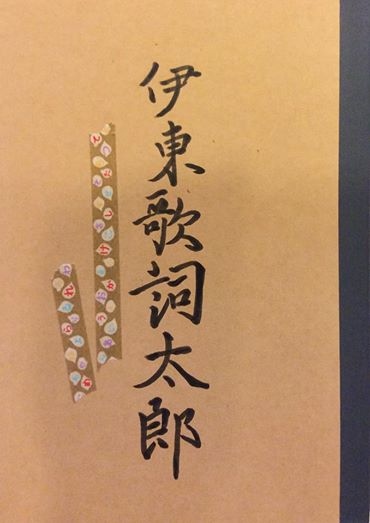 伊東歌詞太郎